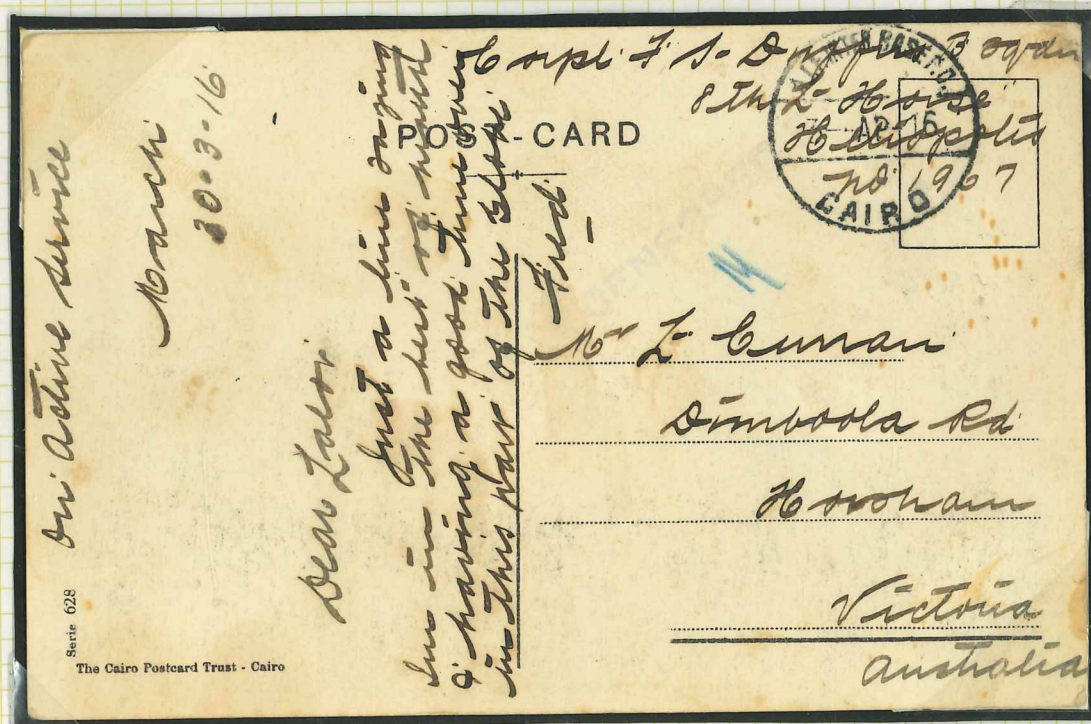 On Active Service
March
30-3-16
Dear Lalor
Just a line saying
Im in the best of health
& having a good time over
in this part of the Globe
Fred
POST-CARD
Corpl F S. B Sqdn
8th L. Horse
Heliopolis
No 1967
CAIRO
CENSOR
Mr L Curran
Dimboola Rd
Horsham
Victoria
Australia
Serie 628
The Cairo Postcard Trust - Cairo